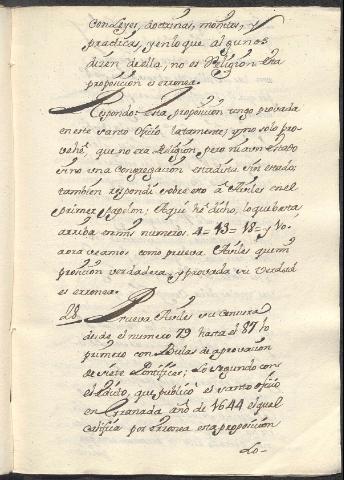 con Leyes, doctrinas, monxes, y
practicas, y en lo que algunos
dizen de ella, no es Religion. Esta
proposicion es erronea.
Respondo: Esta proposicion tengo provada
en este santo Oficio latamente; y no solo pro
vehe, que no era Religion, pero ni aun estado
sino una Congregacion estadiza sin estado;
tambien respondi sobre esto à Aviles en el
primer papelon; Aqui he dicho, lo que basta
arriba en mis numeros. 4=13=18= y
aora veamos como prueva Aviles que mi
proposicion verdadera, y provada su verdad
es erronea.
28. Prueva Aviles su censura
desde el numero 79 hasta el 87 lo
primero con Bulas de aprovacion
de siete Pontifices; Lo segundo con
el Edicto, que publicò el santo oficio
en Granada año de 1644 el qual
califica por erronea esta proposicion
Lo-